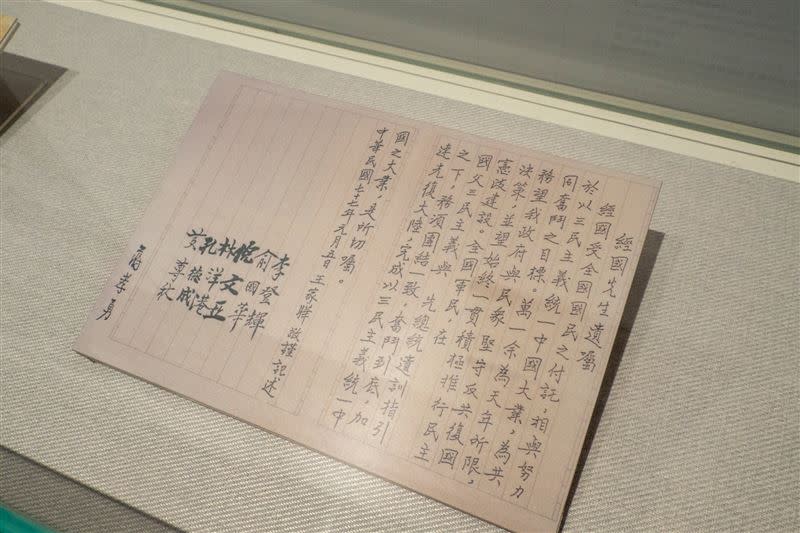 經國先生遺囑
經國受全國國民之付託,相與努力
於以三民主義統一中國大業,為共
同奮鬥之目標。萬一余為天年所限,
務望我政府與民眾堅守反共復國
決策,並望始終一貫積極推行民主
憲政建設。全國軍民,在
國父三民主義與 先總統 遺訓指引
之下,務須團結一致,奮鬥到底,加
速光復大陸,完成以三民主義統一中
國之大業,是所切囑。
中華民國七十七年元月五日 王家驊 敬謹記述
李登輝
俞國華
倪文亞
林洋港
孔德成
黃尊秋
蔣孝勇